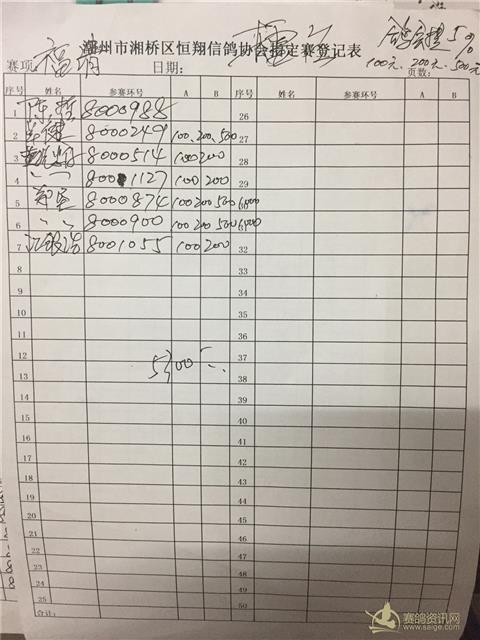 潮州市湘桥区恒翔信鸽协会指定赛登记表
5%
100元、200元、500元
赛项: 福清 日期: 页数:
序号 姓名 参赛环号 A B 序号 姓名 参赛环号 A B
1 陈哲 8000988 26
2 健 8000249 100.200.500 27
3 8000514 100 200 28
4 〃 8001127 100 200 29
5 郑 8000874 100 200 500 1000 30
6 〃 8000900 100 200 500 1000 31
7 江 8001055 100 200 32
8 33
9 34
10 35
11 36
12 5300 37
13 38
14 39
15 40
16 41
17 42
18 43
19 44
20 45
21 46
22 47
23 48
24 49
25 50
合计:
赛鸽资讯网
www.saige.com